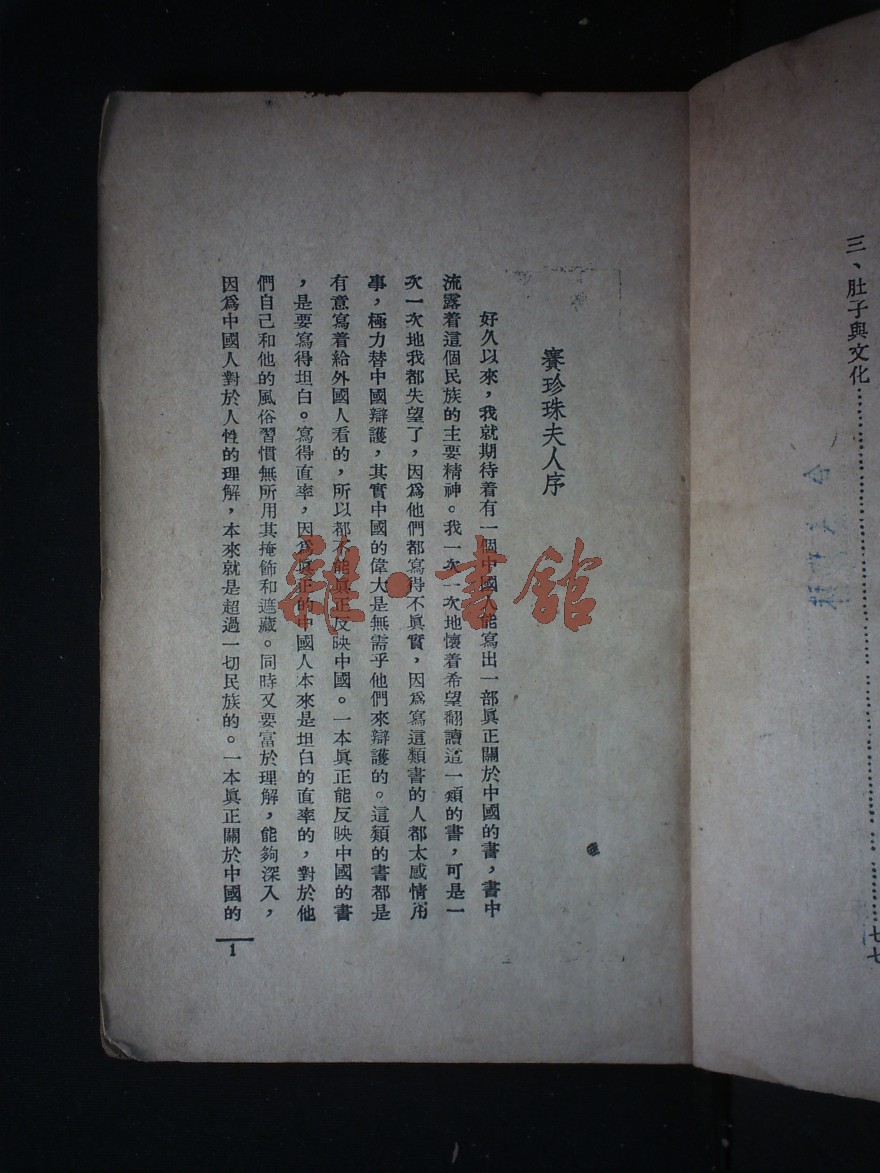 三、肚子與文化……七七
賽珍珠夫人序
好久以來，我就期待着有一個中國人能寫出一部眞正關於中國的書，書中
流露着這個民族的主要精神。我一次一次地懷着希望翻讀這一類的書，可是一
次一次地我都失望了，因爲他們都寫得不眞實，因爲寫這類書的人都太感情用
事，極力替中國辯護，其實中國的偉大是無需乎他們來辯護的。這類的書都是
有意寫着給外國人看的，所以都不能眞正反映中國。一本眞正能反映中國的書
，是要寫得坦白。寫得直率，因爲眞正的中國人本來是坦白的直率的，對於他
們自己和他的風俗習慣無所用其掩飾和遮藏。同時又要富於理解，能夠深入，
因爲中國人對於人性的理解，本來就是超過一切民族的。一本眞正關於中國的
1
雜·書館